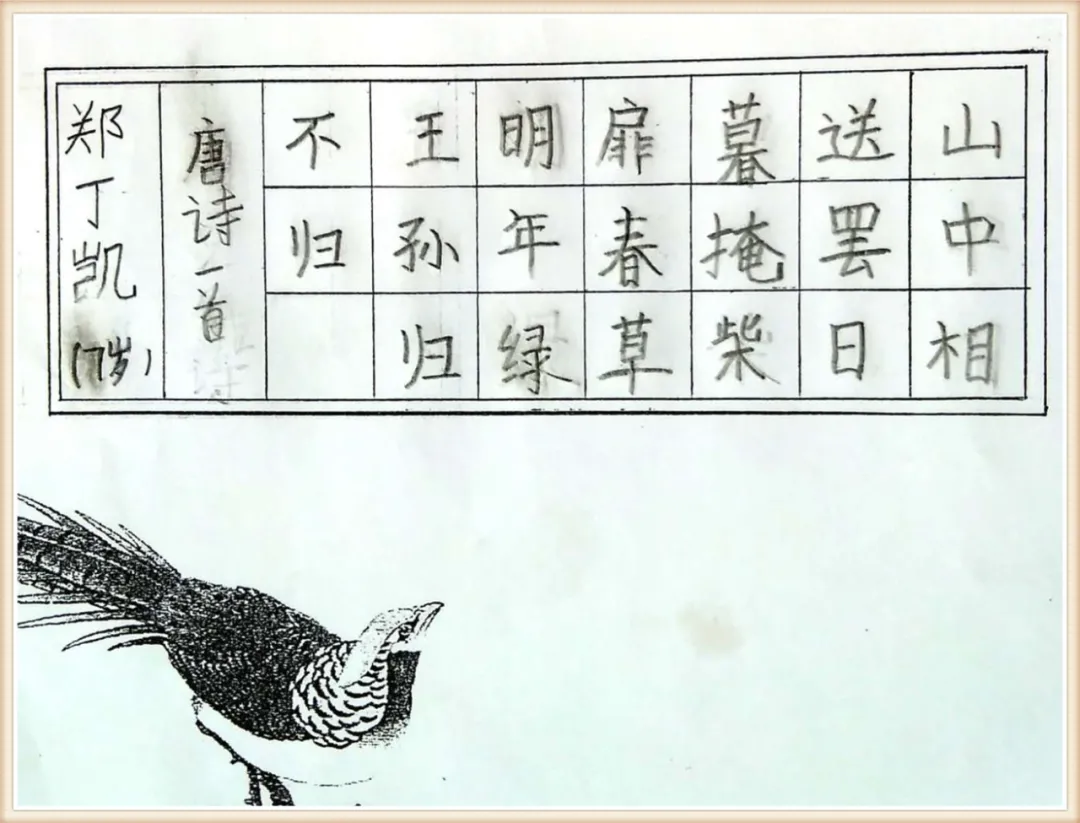 山中相
送罢日
暮掩柴
扉春草
明年绿
王孙归
不归
唐诗一首
郑丁凯(7岁)